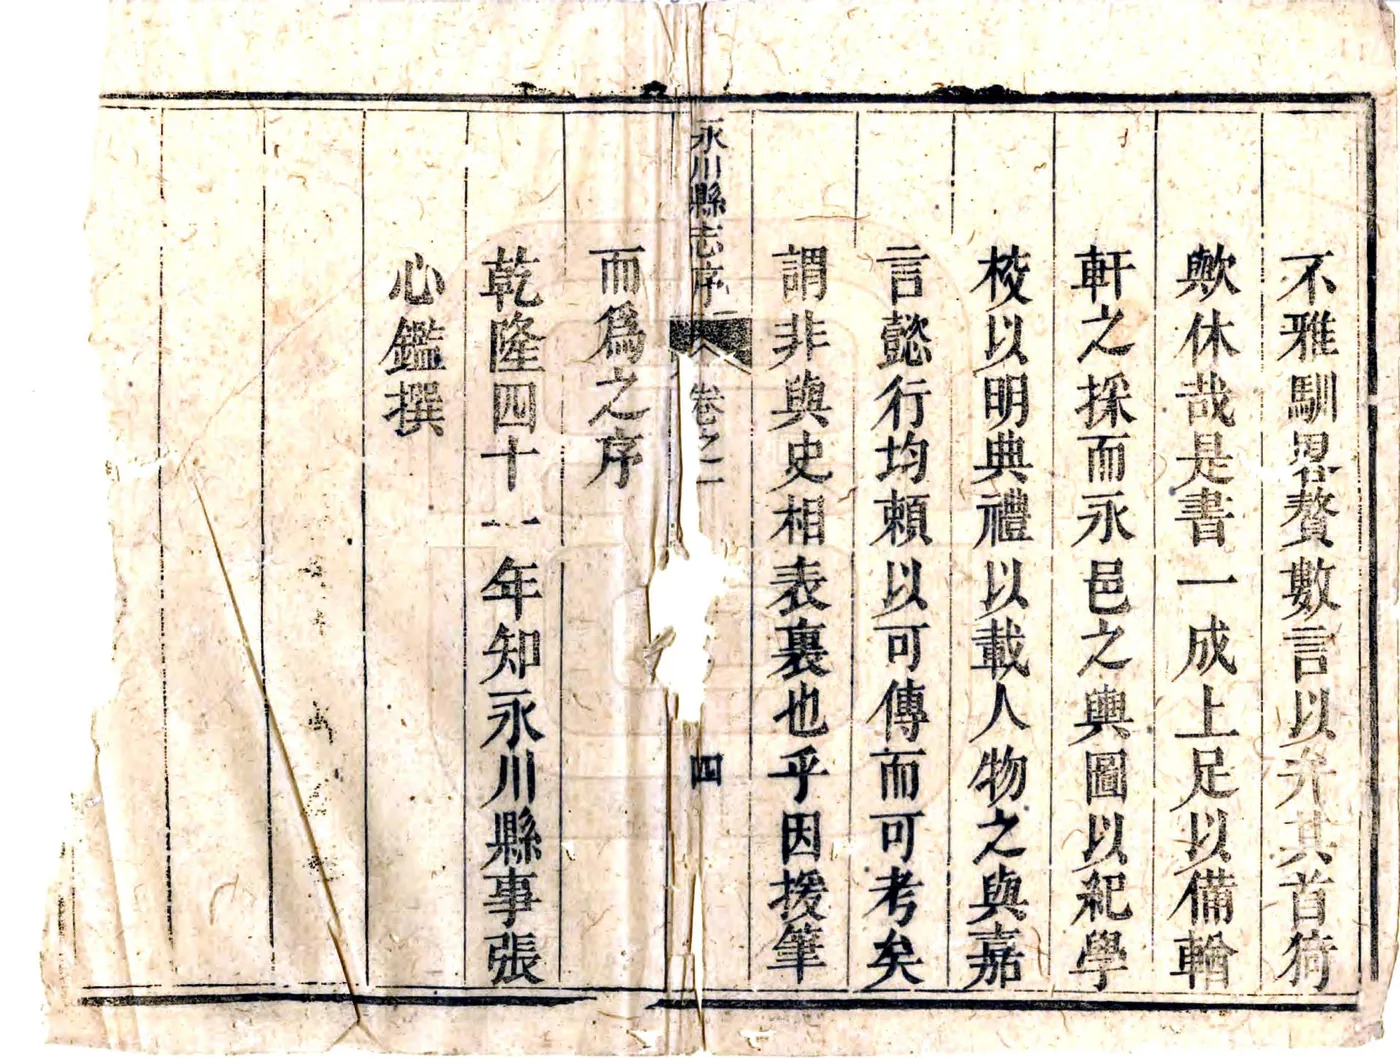 不雅馴畧贅數言以弁其首猗
歟休哉是書一成上足以備輶
軒之採而永邑之輿圖以紀學
校以明典禮以載人物之與嘉
言懿行均頼以可傳而可考矣
謂非與史相表裏也乎因援筆
而爲之序
永川縣志序
卷之一
四
乾隆四十一年知永川縣事張
心鑑撰